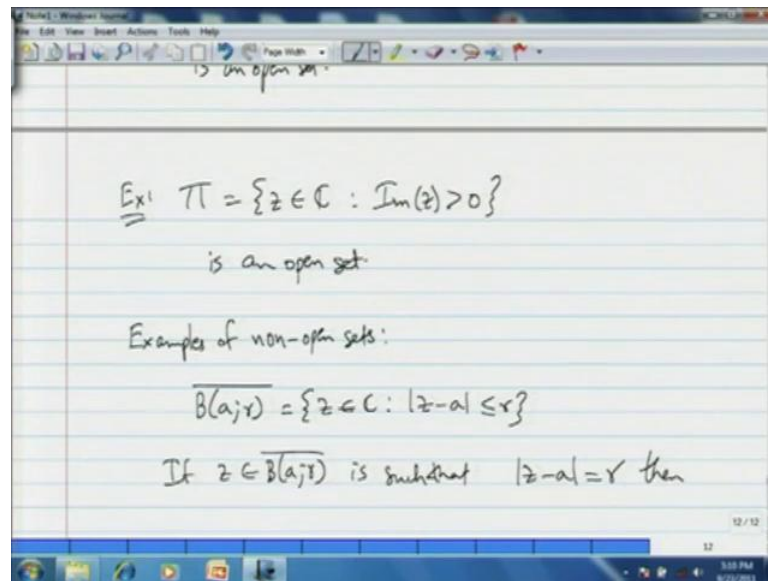 Note1 - Windows Journal
File Edit View Insert Actions Tools Help
Page Width
is an open set.
Ex: Π = {z ∈ ℂ : Im(z) > 0}
is an open set.
Examples of non-open sets:
\overline{B(a;r)} = {z ∈ ℂ : |z-a| ≤ r}
If z ∈ \overline{B(a;r)} is such that |z-a| = r then
12/12
12
5:03 PM